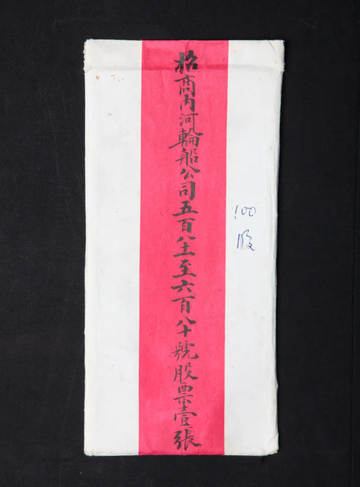 招商內河輪船公司五百八十一至六百八十號股票壹張
100
股